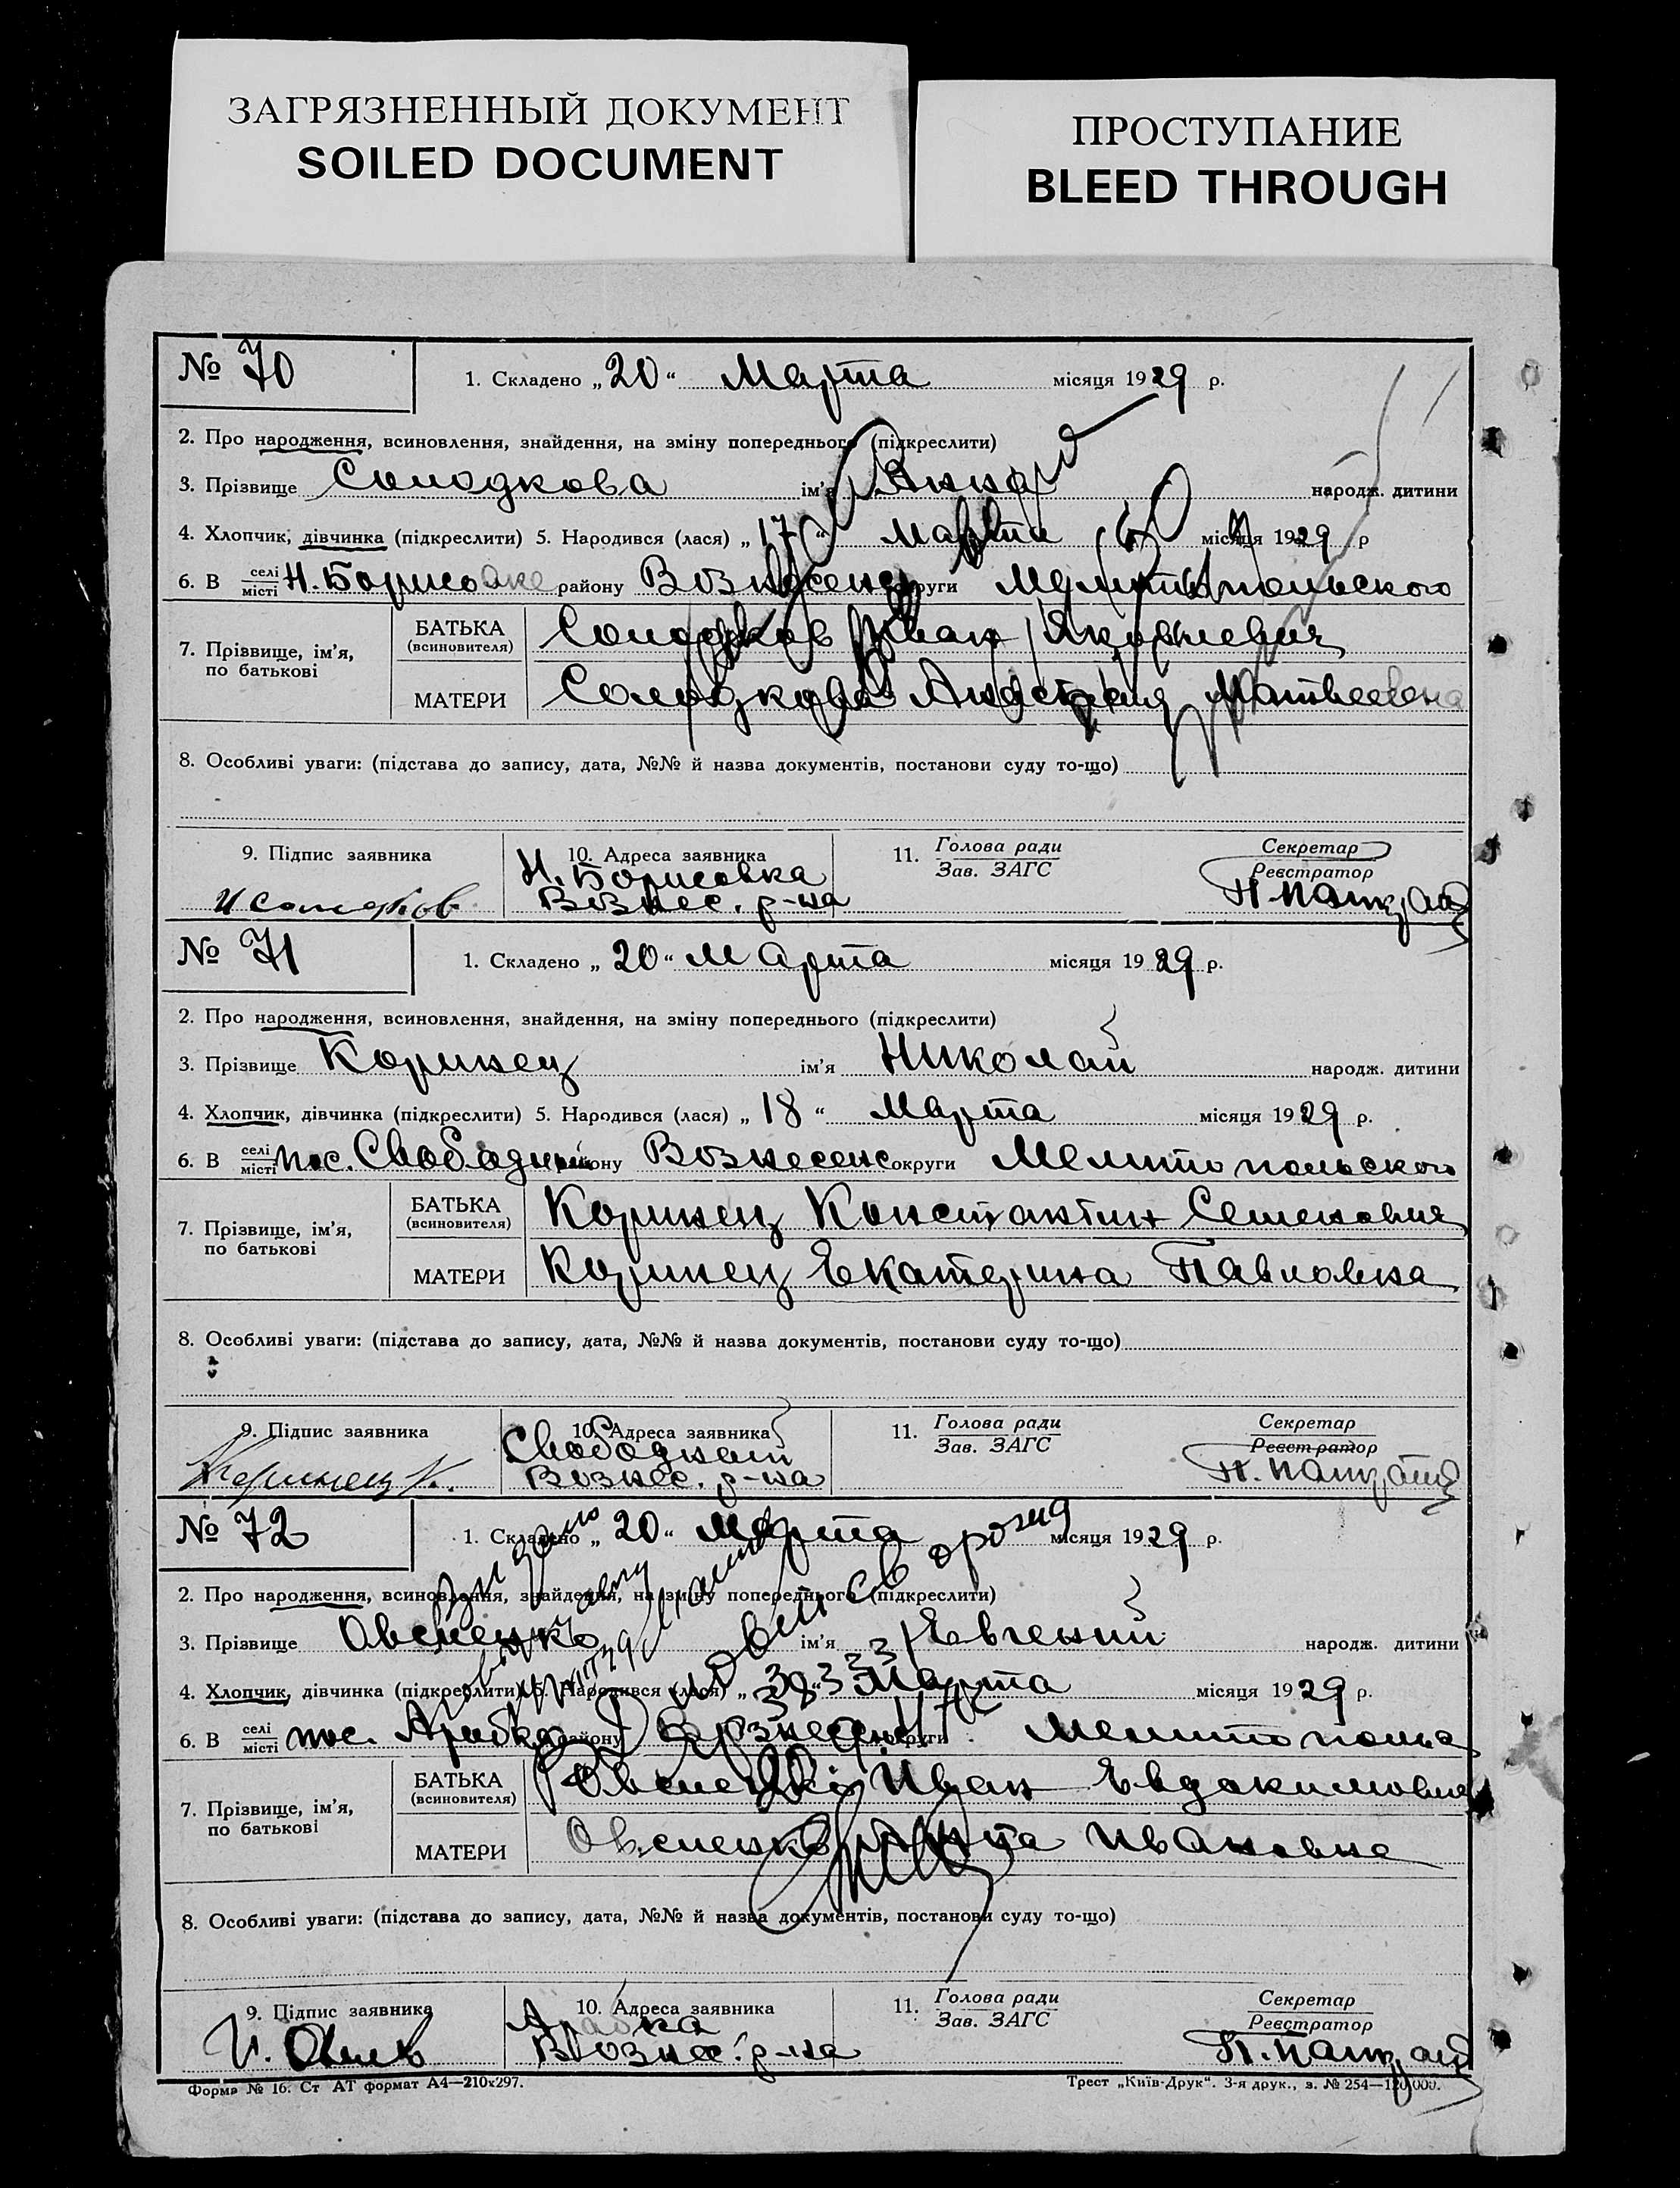 ЗАГРЯЗНЕННЫЙ ДОКУМЕНТ
SOILED DOCUMENT
ПРОСТУПАНИЕ
BLEED THROUGH
№ 70
1. Складено „20“ Марта місяця 1929 р.
2. Про народження, всиновлення, знайдення, на зміну попереднього (підкреслити)
3. Прізвище Солодкова ім'я Анна народж. дитини
4. Хлопчик, дівчинка (підкреслити) 5. Народився (лася) „17“ Марта місяця 1929 р
6. В селі місті Н. Борисовке району Вознесенс округи Мелитопольского
7. Прізвище, ім'я, по батькові
БАТЬКА (всиновителя) Солодков Иван Яковлевич
МАТЕРИ Солодкова Анастасия Матвеевна
8. Особливі уваги: (підстава до запису, дата, №№ й назва документів, постанови суду то-що)
9. Підпис заявника
10. Адреса заявника
11. Голова ради Зав. ЗАГС
Секретар Реєстратор
И Солодков
Н. Борисовка
Вознес. р-на
№ 71
1. Складено „20“ Марта місяця 1929 р.
2. Про народження, всиновлення, знайдення, на зміну попереднього (підкреслити)
3. Прізвище Коринец ім'я Николай народж. дитини
4. Хлопчик, дівчинка (підкреслити) 5. Народився (лася) „18“ Марта місяця 1929 р.
6. В селі місті пос. Свободный району Вознесенс округи Мелитопольского
7. Прізвище, ім'я, по батькові
БАТЬКА (всиновителя) Коринец Константин Семенович
МАТЕРИ Коринец Екатерина Павловна
8. Особливі уваги: (підстава до запису, дата, №№ й назва документів, постанови суду то-що)
9. Підпис заявника
10. Адреса заявника
11. Голова ради Зав. ЗАГС
Секретар Реєстратор
Коринец К.
Свободный
Вознес. р-на
№ 72
1. Складено „20“ Марта місяця 1929 р.
2. Про народження, всиновлення, знайдення, на зміну попереднього (підкреслити)
3. Прізвище Овсиенко ім'я Евгений народж. дитини
4. Хлопчик, дівчинка (підкреслити) 5. Народився (лася) „ “ Марта місяця 1929 р.
6. В селі місті пос. району Вознесенс округи Мелитопольс
7. Прізвище, ім'я, по батькові
БАТЬКА (всиновителя) Овсиенко Иван Евдокимович
МАТЕРИ Овсиенко Анна Ивановна
8. Особливі уваги: (підстава до запису, дата, №№ й назва документів, постанови суду то-що)
9. Підпис заявника
10. Адреса заявника
11. Голова ради Зав. ЗАГС
Секретар Реєстратор
Вознес. р-на
Форма № 16. Ст АТ формат А4—210x297.
Трест „Київ-Друк“. 3-я друк., з. № 254—120,000.